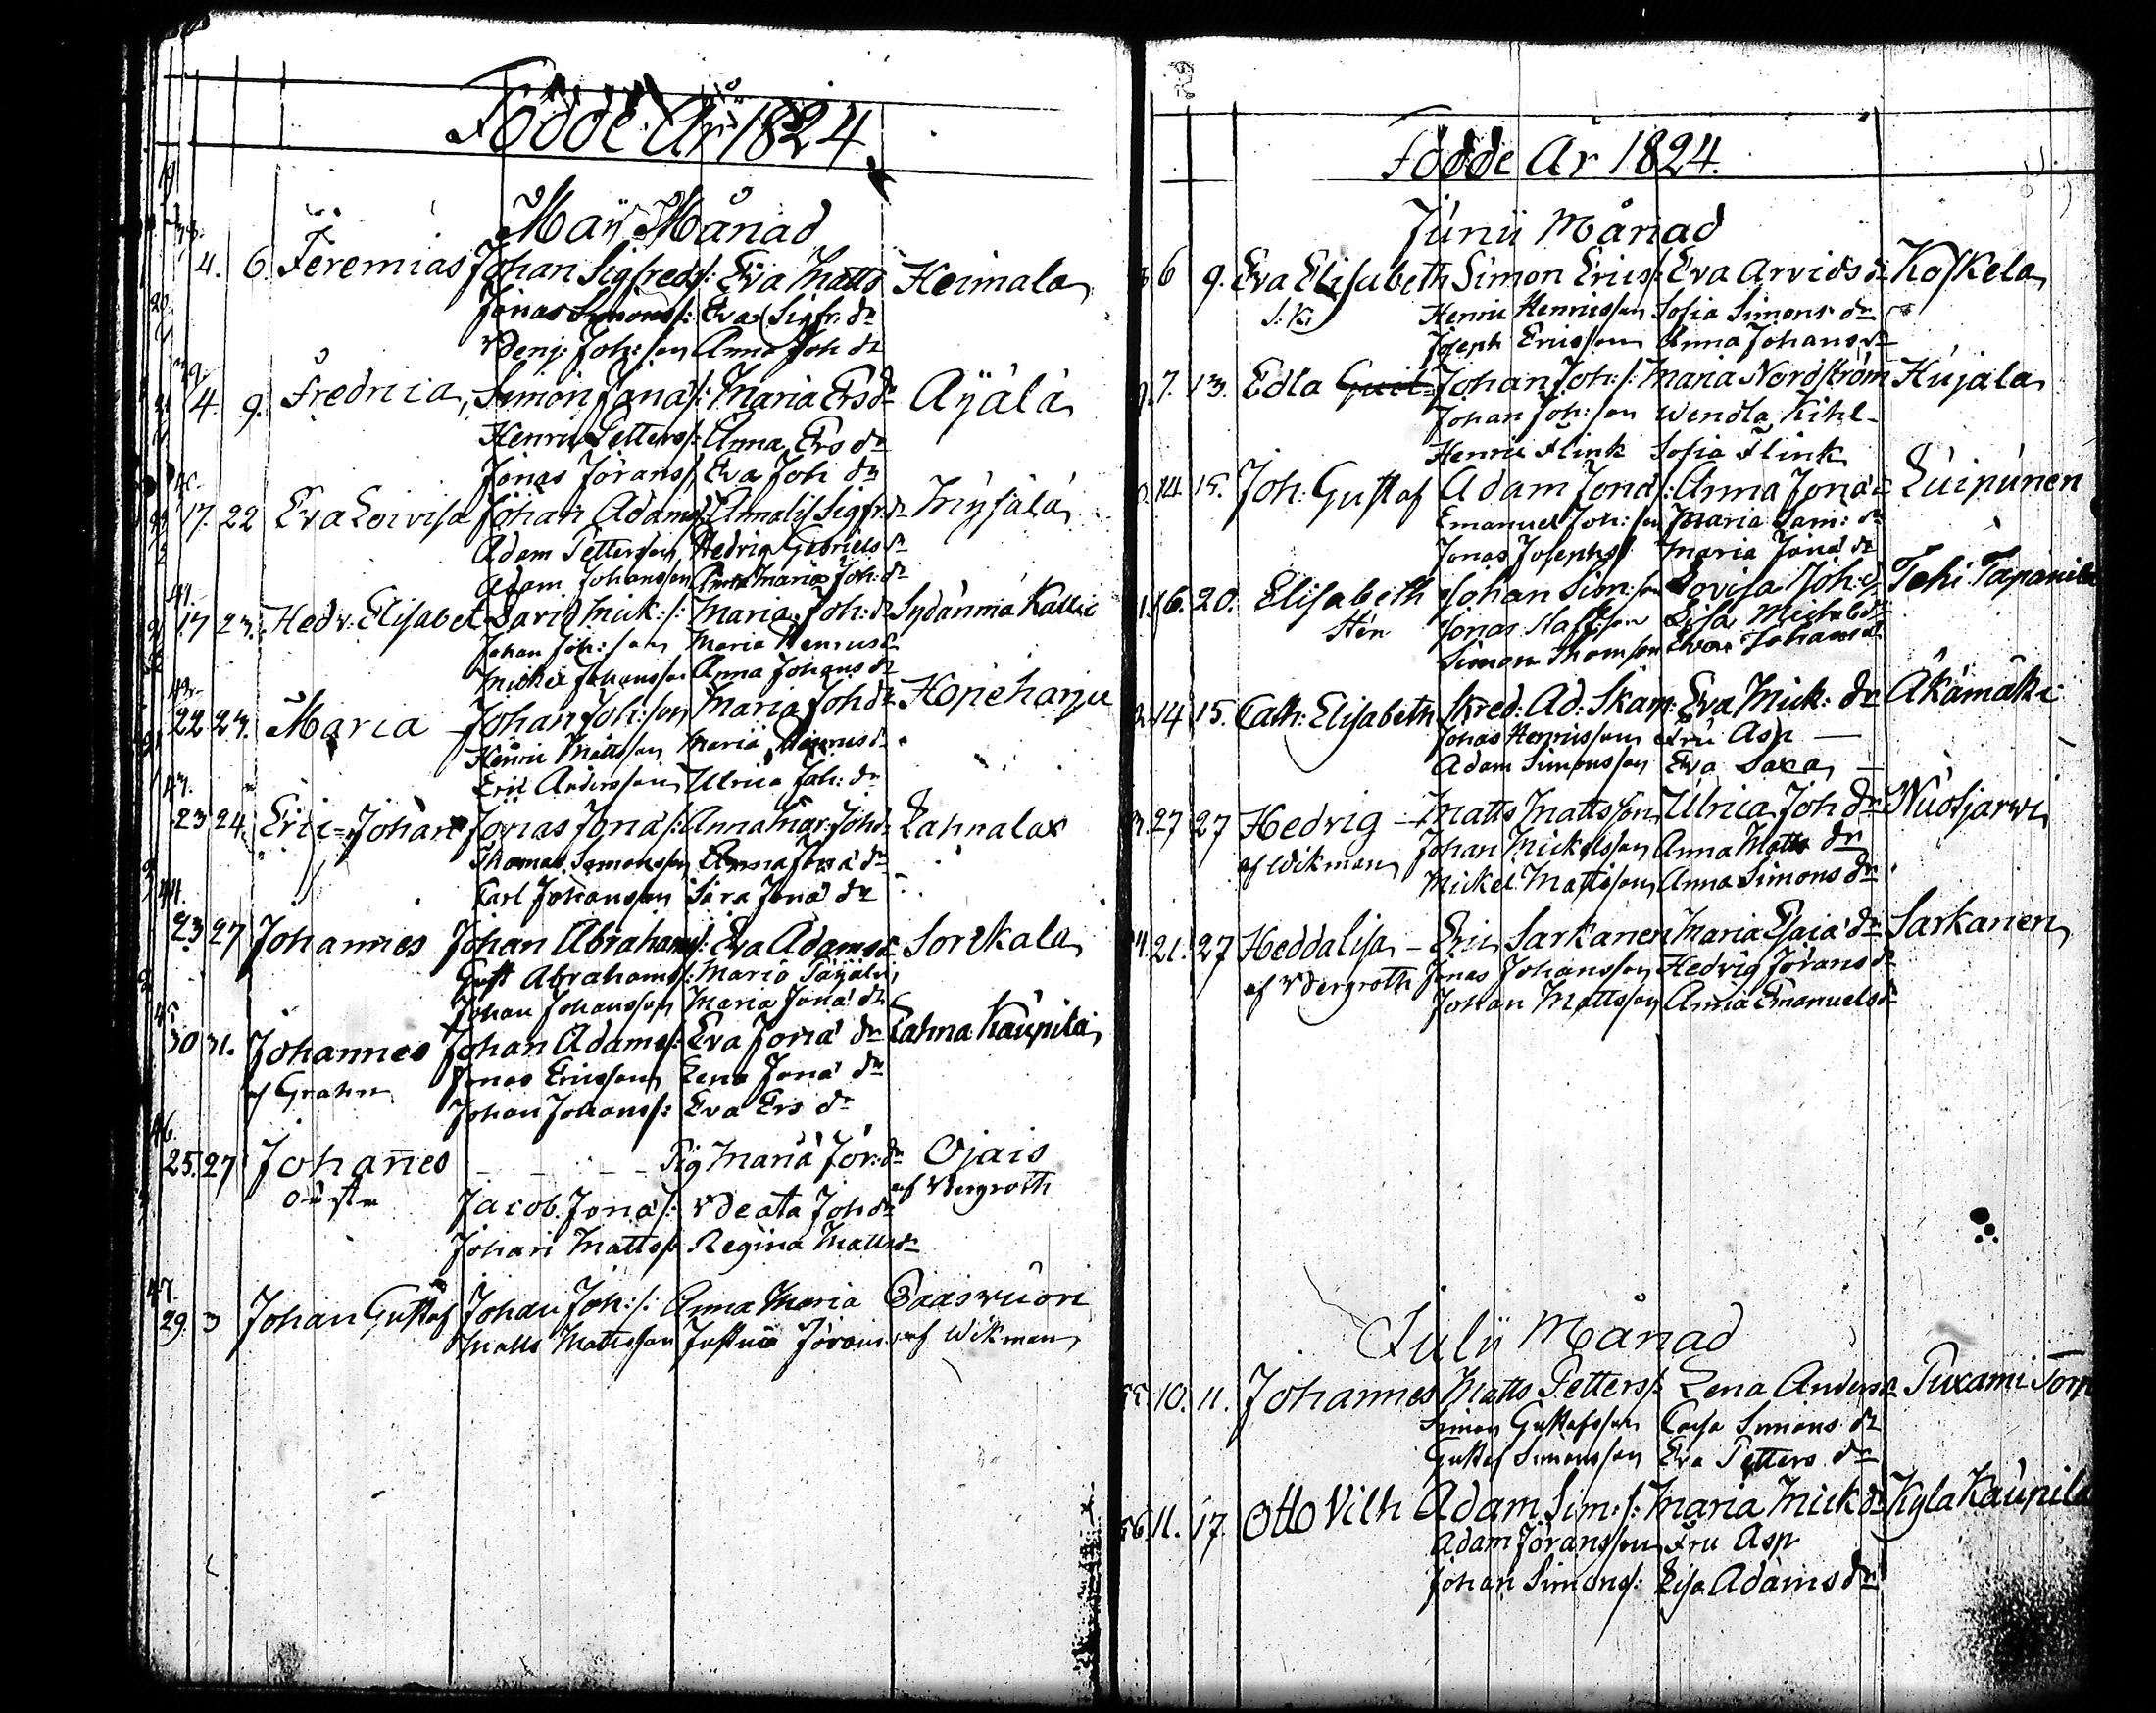 Födde År 1824.
Maii Månad
38.
4. 6. Jeremias Johan Sigfreds/: Eva Matts Heimala
Jonas Simons/: Eva Sigfr. dr
Benj: Joh:son Anna Joh dr
39.
4. 9. Fredrica, Simon Jona/: Maria Ers dr Äÿälä
Henric Petters/: Anna Ers dr
Jonas Jörans/: Eva Joh dr
40.
17. 22 Eva Lovisa Johan Adams/: Annalis Sigfr. dr
Adam Petterson Hedvig Gabriels dr
Adam Johansson Anna Maria Joh: dr
41.
17 23. Hedv. Elisabet David Mick:/: Maria Joh: dr Sydänmä Kallio
Johan Joh:son Maria Henrics dr
Mickel Johansson Anna Johans dr
42.
22 23. Maria Johan Joh:son Maria Joh dr Kopeharju
Henric Mattsson Maria Henrics dr
Eric Andersson Ulrica Joh: dr
43.
23 24. Eric Johan Jonas Jona/: Anna Mar. Joh dr Lahnalax
Thomas Simonsson Anna Jona dr
Carl Johansson Sara Jona dr
44.
23 27 Johannes Johan Abrahams/: Eva Adams dr Sorrkala
Gust Abrahams/: Maria
Johan Johansson Maria Jona dr
45
30 31. Johannes Johan Adams/: Eva Jona dr Lahna Kaupila
af Grahn Jonas Ericsson Lena Jona dr
Johan Johans/: Eva Ers dr
46.
25. 27 Johañes — — — Pig Maria Jör: dr Ojais
oäkta Jacob Jona/: Beata Joh dr af Bergroth
Johan Matts/: Regina Matts dr
47.
29. 3 Johan Gustaf Johan Joh:/: Anna Maria Paaswuori
Matts Mattsson Justina Jörans af Wikman
Födde År 1824.
Junii Månad
6 9. Eva Elisabeth Simon Erics/: Eva Arvids dr Koskela
S. K. Henric Henricsson Sofia Simons dr
Joseph Ericsson Anna Johans dr
7. 13. Edla Johan Joh:/: Maria Nordström Kujala
Johan Joh:son Wendla Kihl
Henric Flink Sofia Flink
14 15. Joh: Gustaf Adam Jona/: Anna Jona dr Luipunen
Emanuel Joh:son Maria Sam: dr
Jonas Josephs/: Maria Jona dr
16. 20. Elisabeth Johan Sim:son Lovisa Joh: d Tehi Tapanila
Stén Jonas Staff:son Lisa Mickels dr
Simon Thomson Eva Johans dr
14 15. Cath: Elisabeth Skred: Ad. Skam: Eva Mick: dr Äkämäki
Johas Henricsson Fru Asp —
Adam Simonsson Eva Saxa —
27 27 Hedvig — Matts Mattsson Ulrica Joh dr Wuotjärwi
af Wikman Johan Mickelsson Anna Matts dr
Mickel Mattsson Anna Simons dr
21. 27 Heddalisa — Eric Sarkanen Maria Esaia dr Sarkanen
af Bergroth Jonas Johansson Hedvig Jörans dr
Johan Mattsson Anna Emanuels dr
Julii Månad
55. 10. 11. Johannes Matts Petters/: Lena Anders dr
Simon Gustafsson Cajsa Simons dr
Gustaf Simonsson Eva Petters dr
56 11. 17. Otto Vilh Adam Sim:/: Maria Mick dr Kyla Kaupila
Adam Jöransson Fru Asp
Johan Simons/: Lisa Adams dr